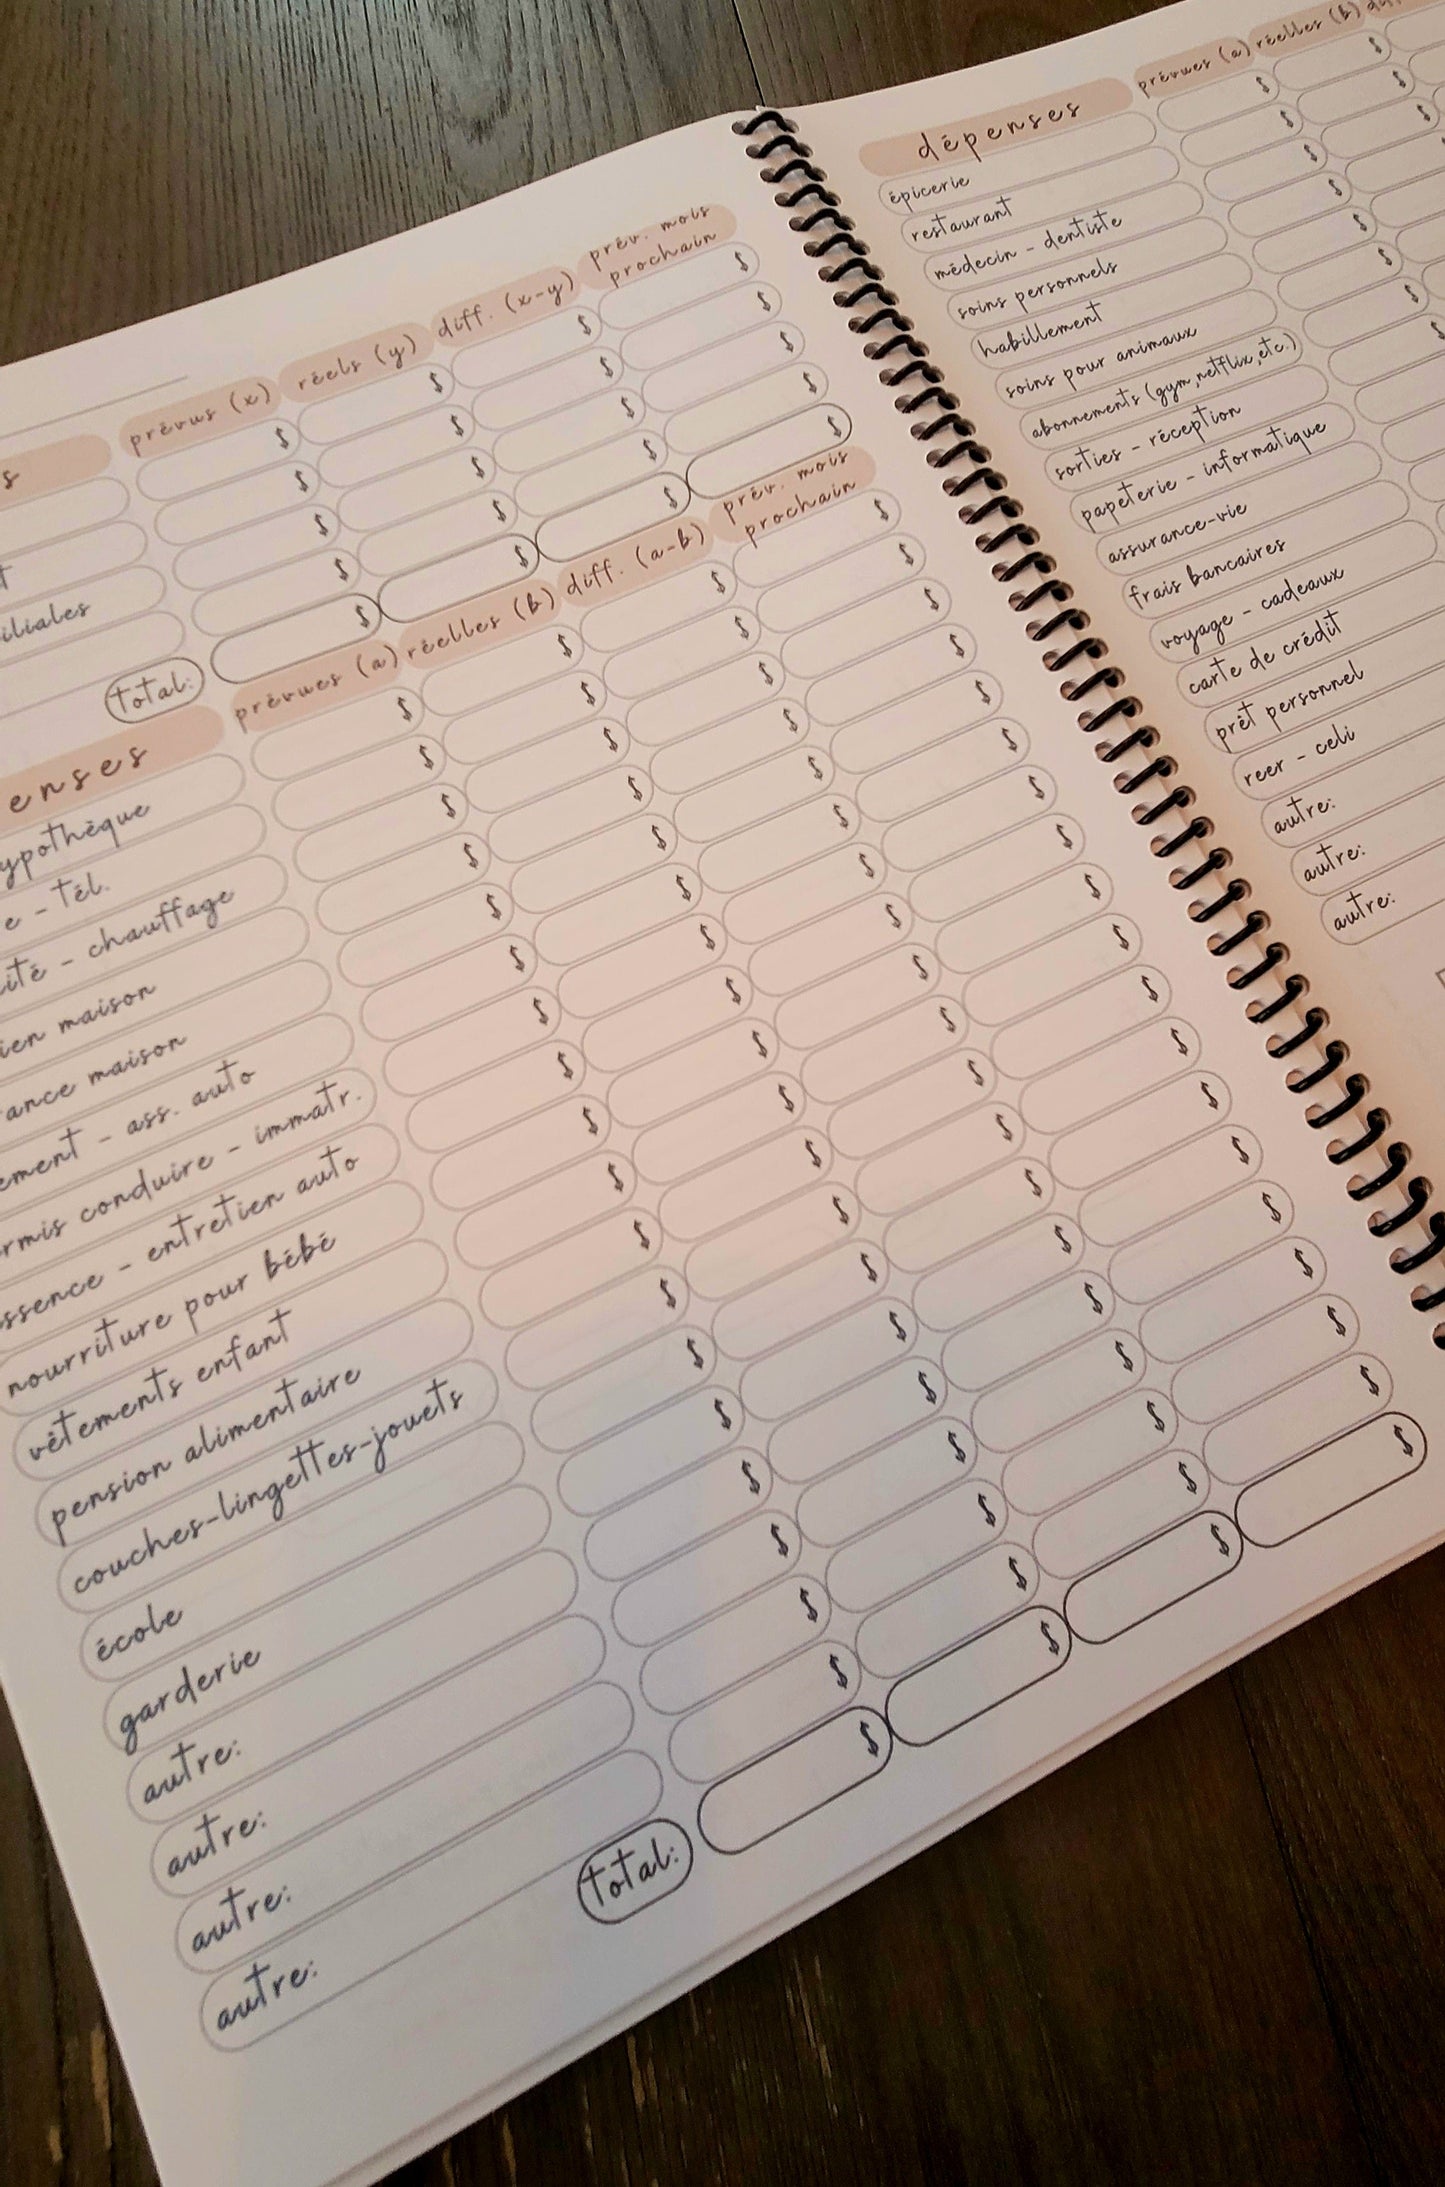 prévus (x) réels (y) diff. (x-y) prév. mois prochain
$ $ $ $
$ $ $ $
$ $ $ $
$ $ $ $
total: $ $ $ $
prévues (a) réelles (b) diff. (a-b) prév. mois prochain
- tél.
- chauffage
maison
maison
- ass. auto
conduire - immatr.
- entretien auto
nourriture pour bébé
vêtements enfant
pension alimentaire
couches-lingettes-jouets
école
garderie
autre:
autre:
autre:
autre:
total: $ $ $ $
dépenses prévues (a) réelles (b)
épicerie
restaurant
médecin - dentiste
soins personnels
habillement
soins pour animaux
abonnements (gym, netflix, etc.)
sorties - réception
papeterie - informatique
assurance-vie
frais bancaires
voyage - cadeaux
carte de crédit
prêt personnel
reer - celi
autre:
autre:
autre: